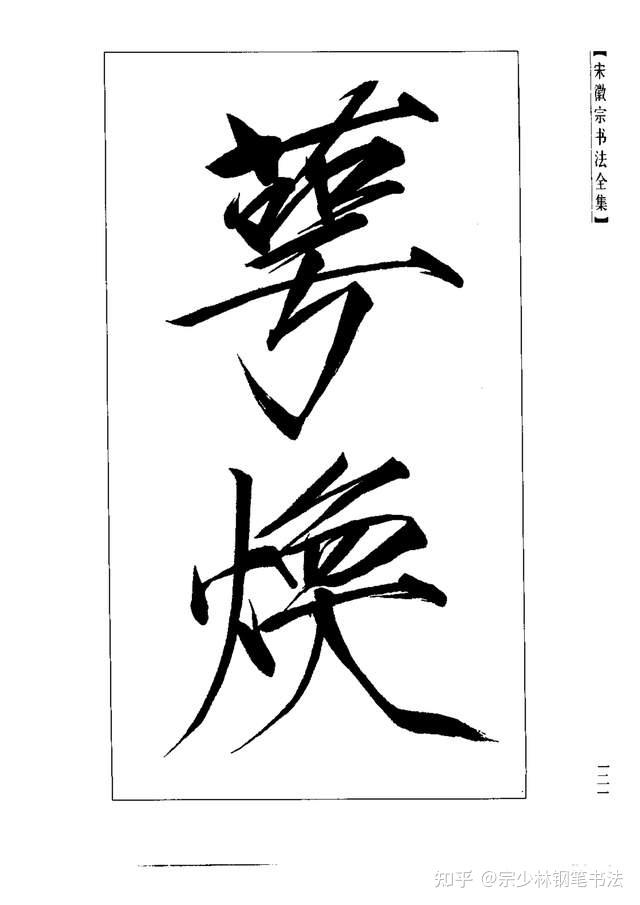 【宋徽宗书法全集】
萼
煥
一二一
知乎 @宗少林钢笔书法